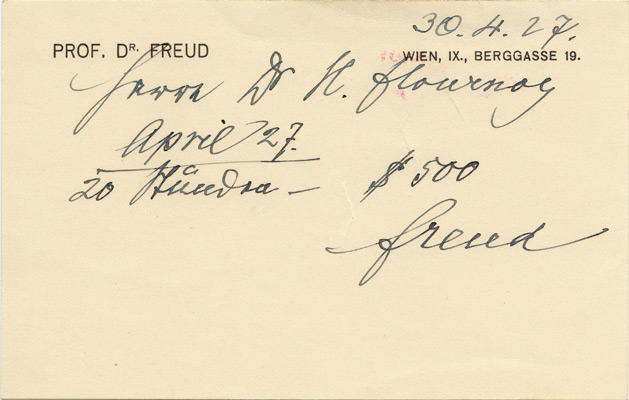 30.4.27.
PROF. DR. FREUD
WIEN, IX., BERGGASSE 19.
Herrn Dr H. Flournoy
April 27.
20 Stunden — $ 500
Freud